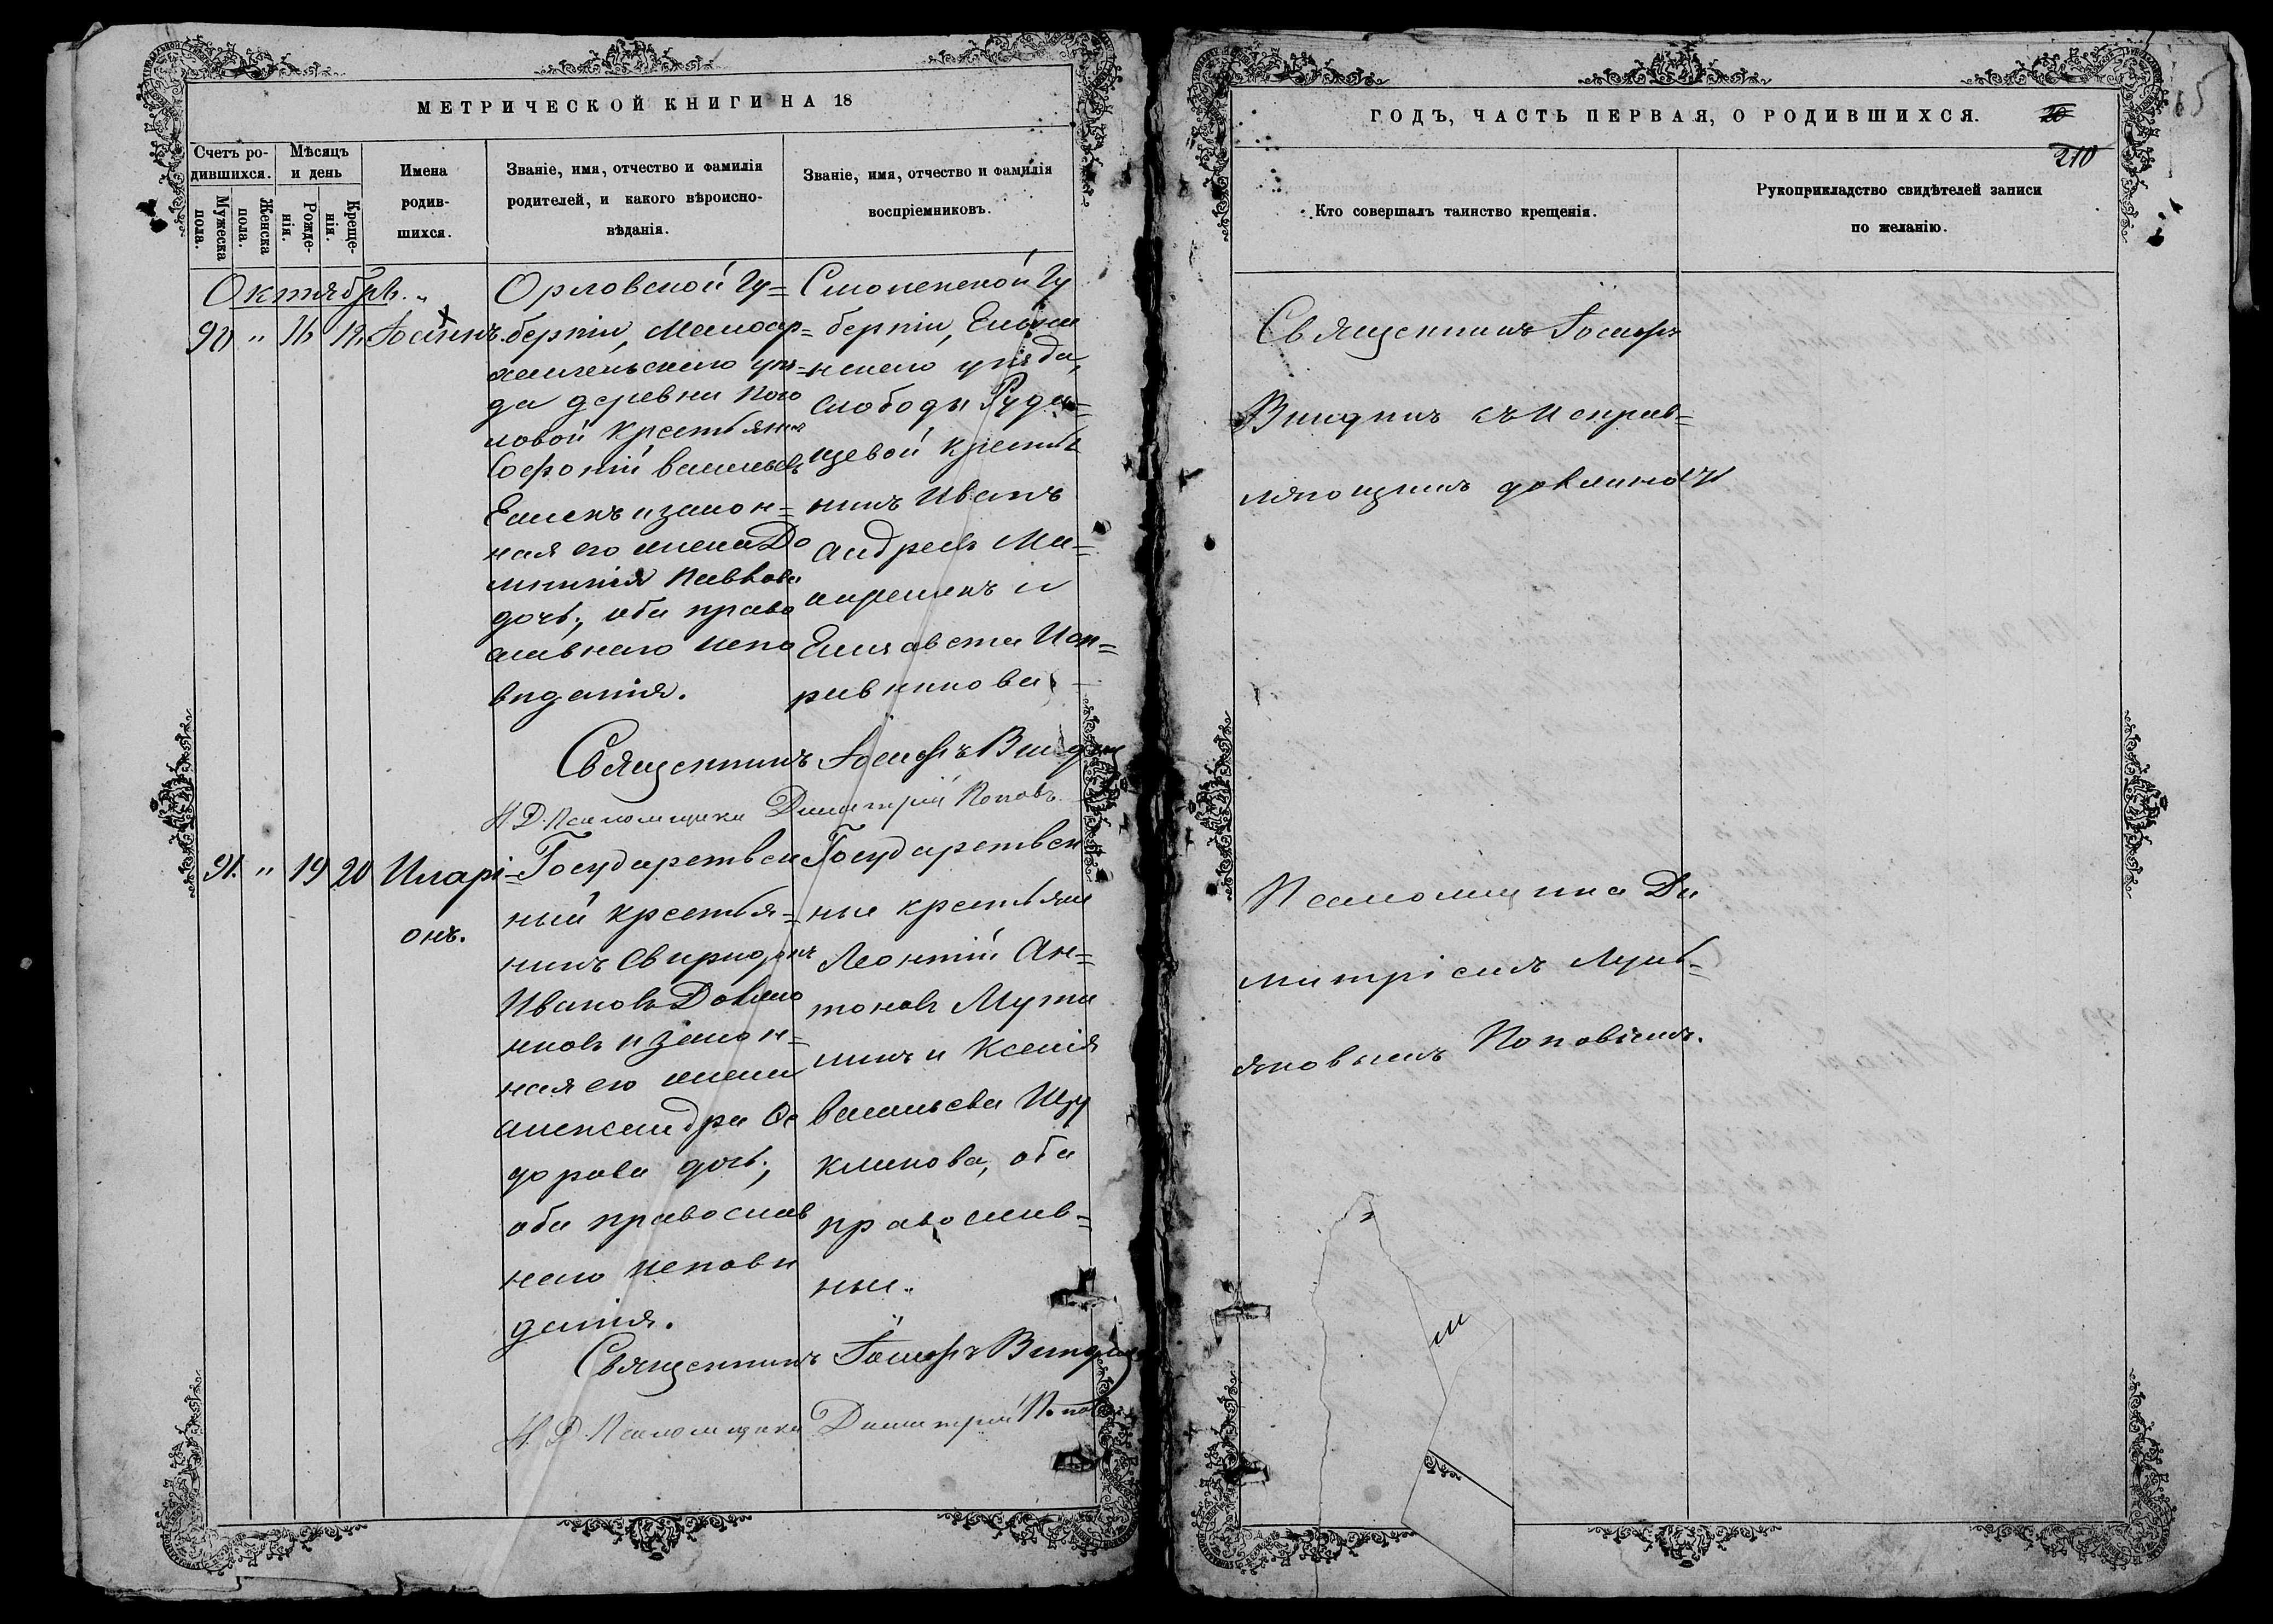 МЕТРИЧЕСКОЙ КНИГИ НА 18
Счетъ ро-
дившихся.
Мѣсяцъ
и день
Мужеска
пола.
Женска
пола.
Рожде-
нія.
Креще-
нія.
Имена
родив-
шихся.
Званіе, имя, отчество и фамилія
родителей, и какого вѣроиспо-
вѣданія.
Званіе, имя, отчество и фамилія
воспріемниковъ.
Октябрь.
90 " 16
Орловской Гу=
берніи, Малоар=
да деревни
ловой крестьянинъ
Софоній Васильевъ
и закон=
ная его жена До
мникія Павлова
дочь, оба право
славнаго испо
вѣданія.
Смоленской Гу
берніи, Ельни
нскаго уѣзда,
слободы Рудн=
цевой крестья
нинъ Иванъ
Андреевъ Ма=
и
Елизавета Исп=
равникова
Священникъ Іосифъ
И. Д. Псаломщика Димитрій Поповъ
91. " 19 20 Иларі=
онъ.
Государствен
ный крестья=
нинъ Свиридонъ
Ивановъ
и закон=
ная его жена
Александра Ѳе
дорова дочь,
оба православ
наго исповѣ
данія.
Государствен
ные крестьяне
Леонтій Ан=
тоновъ
и Ксенія
Васильева
оба
православ=
ные.
Священникъ Іосифъ
И. Д. Псаломщика Димитрій Поповъ
ГОДЪ, ЧАСТЬ ПЕРВАЯ, О РОДИВШИХСЯ.
20
210
65
Кто совершалъ таинство крещенія.
Рукоприкладство свидѣтелей записи
по желанію.
Священникъ Іосифъ
съ исправ=
ляющимъ должность
Псаломщика Ди
митріемъ Лукь=
яновымъ Поповымъ.